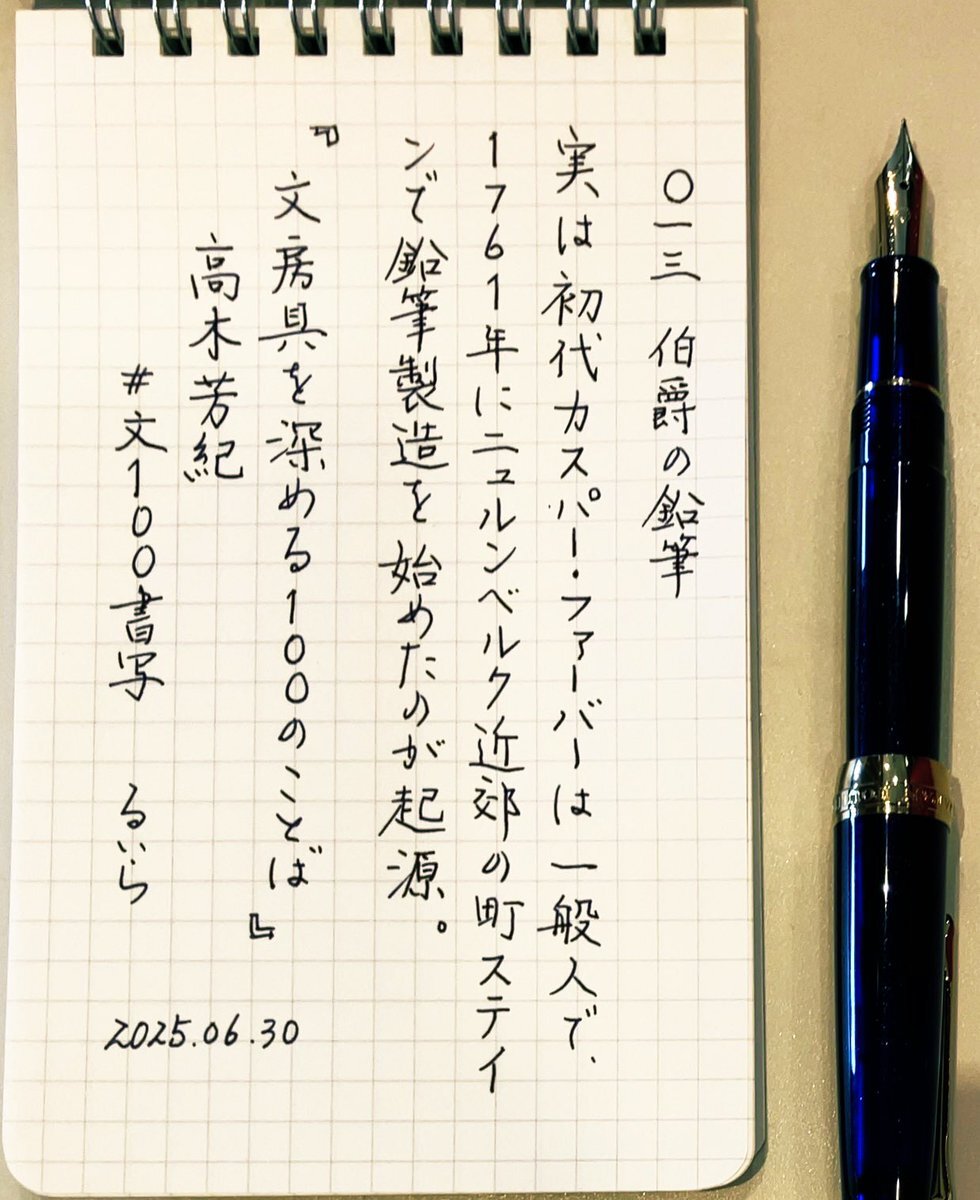 〇一三　伯爵の鉛筆
実は初代カスパー・ファーバーは一般人で、
1761年にニュルンベルク近郊の町スティ
ンで鉛筆製造を始めたのが起源。
『文房具を深める100のことば』
高木芳紀
#文100書写　るいら
2025.06.30